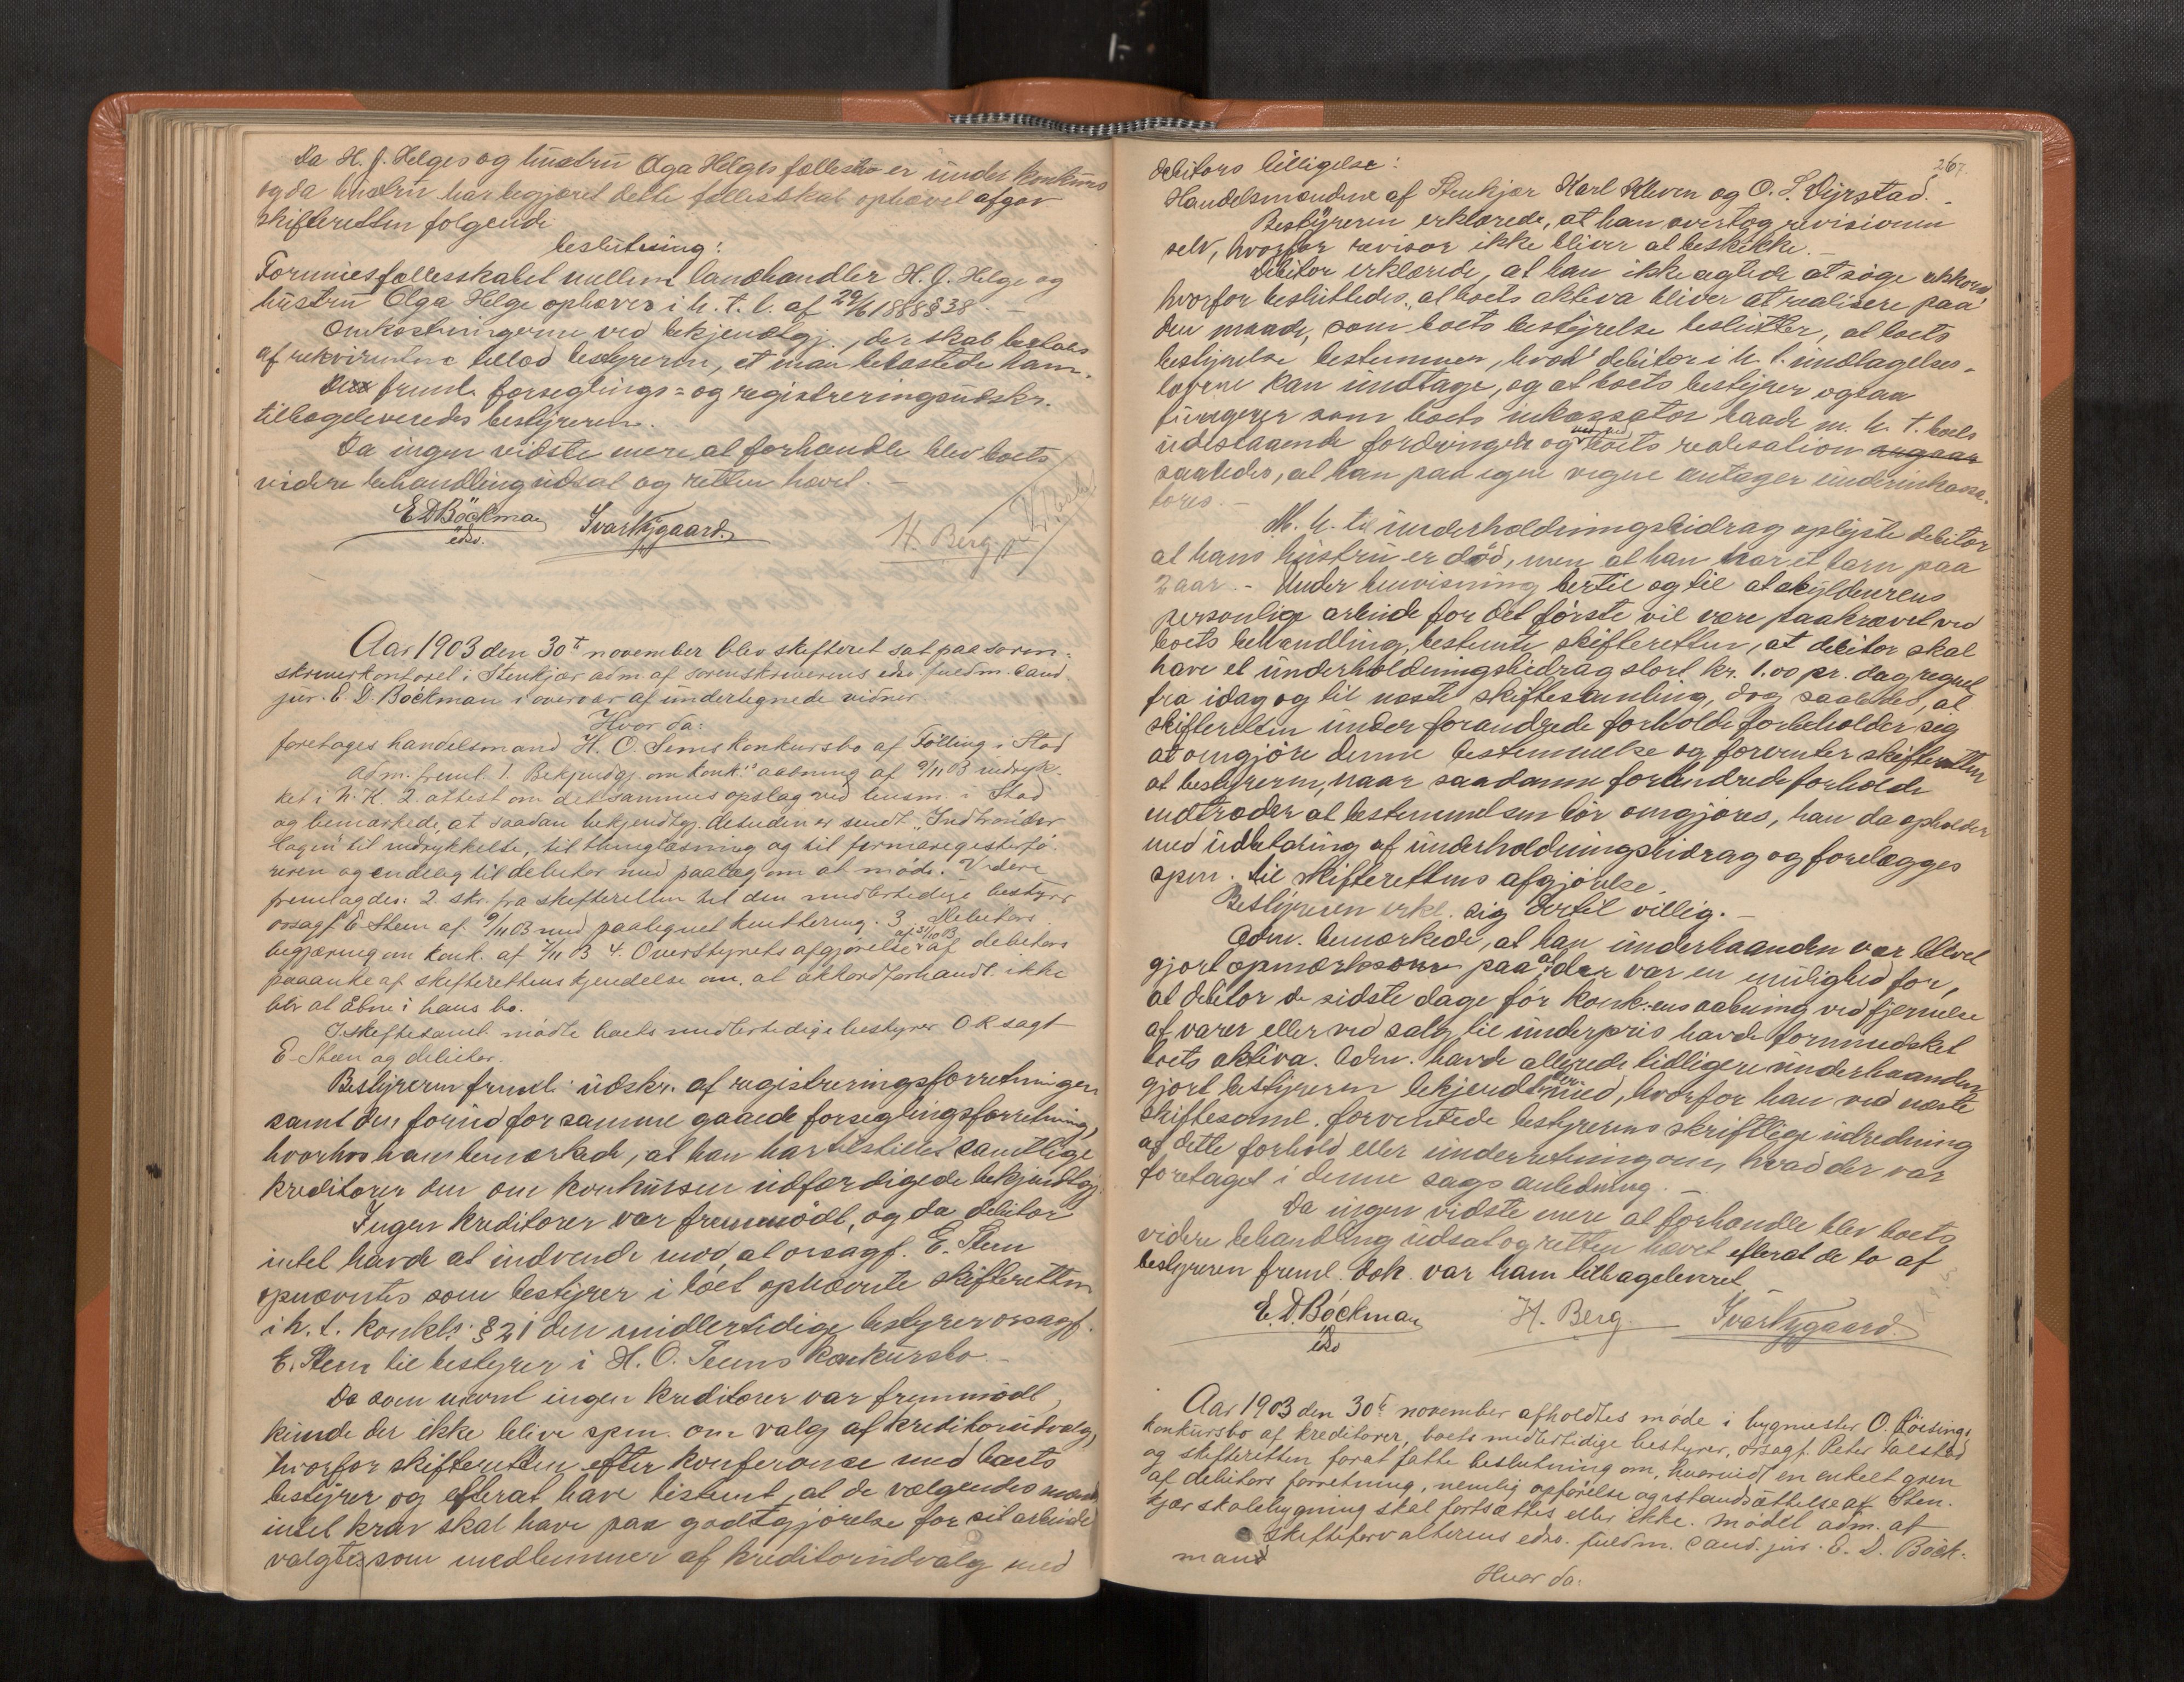 Da H. J. Helges og hustru Olga Helges fællesbo er under konkurs
og da hustru har begjæret dette fællesskab ophævet afgav
skifteretten følgende
beslutning:
Formuesfællesskabet mellem landhandler H. J. Helge og
hustru Olga Helge ophæves i h. t. l. af 29/6 1888 § 38. –
Omkostningerne ved bekjendtgj., der skal betales
af rekvirentene tillod bestyreren, at man belastede ham.
De freml. forseglings- og registreringsudskr.
tilbageleveredes bestyreren.
Da ingen vidste mere at forhandle blev boets
videre behandling udsat og retten hævet. –
E D Böckman Ivar Nygaard. H. Berg.
edsv.
Aar 1903 den 30t november blev skifteret sat paa soren-
skriverkontoret i Stenkjær adm. af sorenskriverens edsv. fuldm. cand.
jur. E. D. Böckman i overvær af undertegnede vidner
Hvor da:
foretoges handelsmand H. O. Tems konkursbo af Følling i Stod
Adm. freml. 1. Bekjendtgj. om konk. aabning af 9/11 03 indryk-
ket i N. K. 2. attest om detsammes opslag ved lensm. i Stod
og bemærkede, at saadan bekjendtgj. desuden er sendt "Indtrønder
lagen" til indrykkelse, til thinglæsning og til firmaregisterfø-
reren og endelig til debitor med paalæg om at møde. Videre
fremlagdes: 2. skr. fra skifteretten til den midlertidige bestyrer
orsagf. E Steen af 9/11 03 med paategnet kvittering. 3. Debitors
begjæring om konk. af 7/11 03 4. Overstyrets afgjørelse af 31/10 03 af debitors
paaanke af skifterettens kjendelse om, at akkordforhandl. ikke
blir at åbne i hans bo.
I skiftesaml. mødte boets midlertidige bestyrer O R sagf
E. Steen og debitor.
Bestyreren freml. udskr. af registreringsforretningen
samt den forud for samme gaaede forseglingsforretning,
hvorhos han bemærkede, at han har tilstillet samtlige
kreditorer den om konkursen udfærdigede bekjendtgj.
Ingen kreditorer var fremmødt, og da debitor
intet havde at indvende mod, at orsagf. E. Steen
opnævntes som bestyrer i boet opnævnte skifteretten
i h. t. konkl. § 21 den midlertidige bestyrer orsagf.
E. Steen til bestyrer i H. O. Teems konkursbo. –
Da som nævnt ingen kreditorer var fremmødt,
kunde der ikke blive spm. om valg af kreditorudvalg,
hvorfor skifteretten efter konferance med boets
bestyrer og efterat have bestemt, at de vælgendes mænd
intet krav skal have paa godtgjørelse for sit arbeide
valgte som medlemmer af kreditorudvalg med
267.
debitors billigelse:
Handelsmændene af Stenkjær Karl Kleven og O. L. Dyrstad. –
Bestyreren erklærede, at han overtog revisionen
selv, hvorfor revisor ikke bliver at beskikke. –
Debitor erklærede, at han ikke agtede at søge akkord
hvorfor besluttedes, at boets aktiva bliver at realisere paa
den maade, som boets bestyrelse beslutter, at boets
bestyrelse bestemmer, hvad debitor i h. t. undtagelses-
lovene kan undtage, og at boets bestyrer ogsaa
fungerer som boets inkassator baade m. h. t. boets
udestaaende fordringer og ved boets realisation
saaledes, at han paa egne vegne antager underinkassa-
tores. –
M. h. til underholdningsbidrag oplyste debitor
at hans hustru er död, men at han har et barn paa
2 aar. – Under henvisning hertil og til at skyldnerens
personlige arbeide for det første vil være paakrævet ved
boets behandling, bestemte skifteretten, at debitor skal
have et underholdningsbidrag stort kr. 1.00 pr. dag regnet
fra idag og til næste skiftesamling, dog saaledes, at
skifteretten under forandrede forholde forbeholder sig
at omgjöre denne bestemmelse og forventer skifteretten
at bestyreren, naar saadanne forandrede forholde
indtræder at bestemmelsen bör omgjøres, han da ophører
med udbetaling af underholdningsbidrag og forelægges
spm. til skifterettens afgjörelse.
Bestyreren erkl. sig dertil villig. –
Adm. bemærkede, at han underhaanden var blevet
gjort opmærksom paa at der var en mulighed for,
at debitor de sidste dage før konk.ens aabning ved fjernelse
af varer eller ved salg til underpris havde formindsket
boets aktiva. Adm. havde allerede tidligere underhaanden
gjort bestyreren bekjendt hermed, hvorfor han ved næste
skiftesaml. forventede bestyrerens skriftlige udredning
af dette forhold eller underretning om, hvad der var
foretaget i denne sags anledning. –
Da ingen vidste mere at forhandle blev boets
videre behandling udsat og retten hævet efterat de to af
bestyreren freml. dok. var ham tilbageleveret
E. D. Böckman H. Berg. Ivar Nygaard.
edsv
Aar 1903 den 30t november afholdtes møde i bygmester O. Röisings
konkursbo af kreditorer, boets midlertidige bestyrer, orsagf. Peter Vaestad
og skifteretten forat fatte beslutning om, hvorvidt en enkelt gren
af debitors forretning, nemlig opførelse og istandsættelse af Sten-
kjær skolebygning skal fortsættes eller ikke. Mødet adm. af
skifteforvalterens edsv. fuldm. cand. jur. E. D. Böck-
mand
Hvor da: